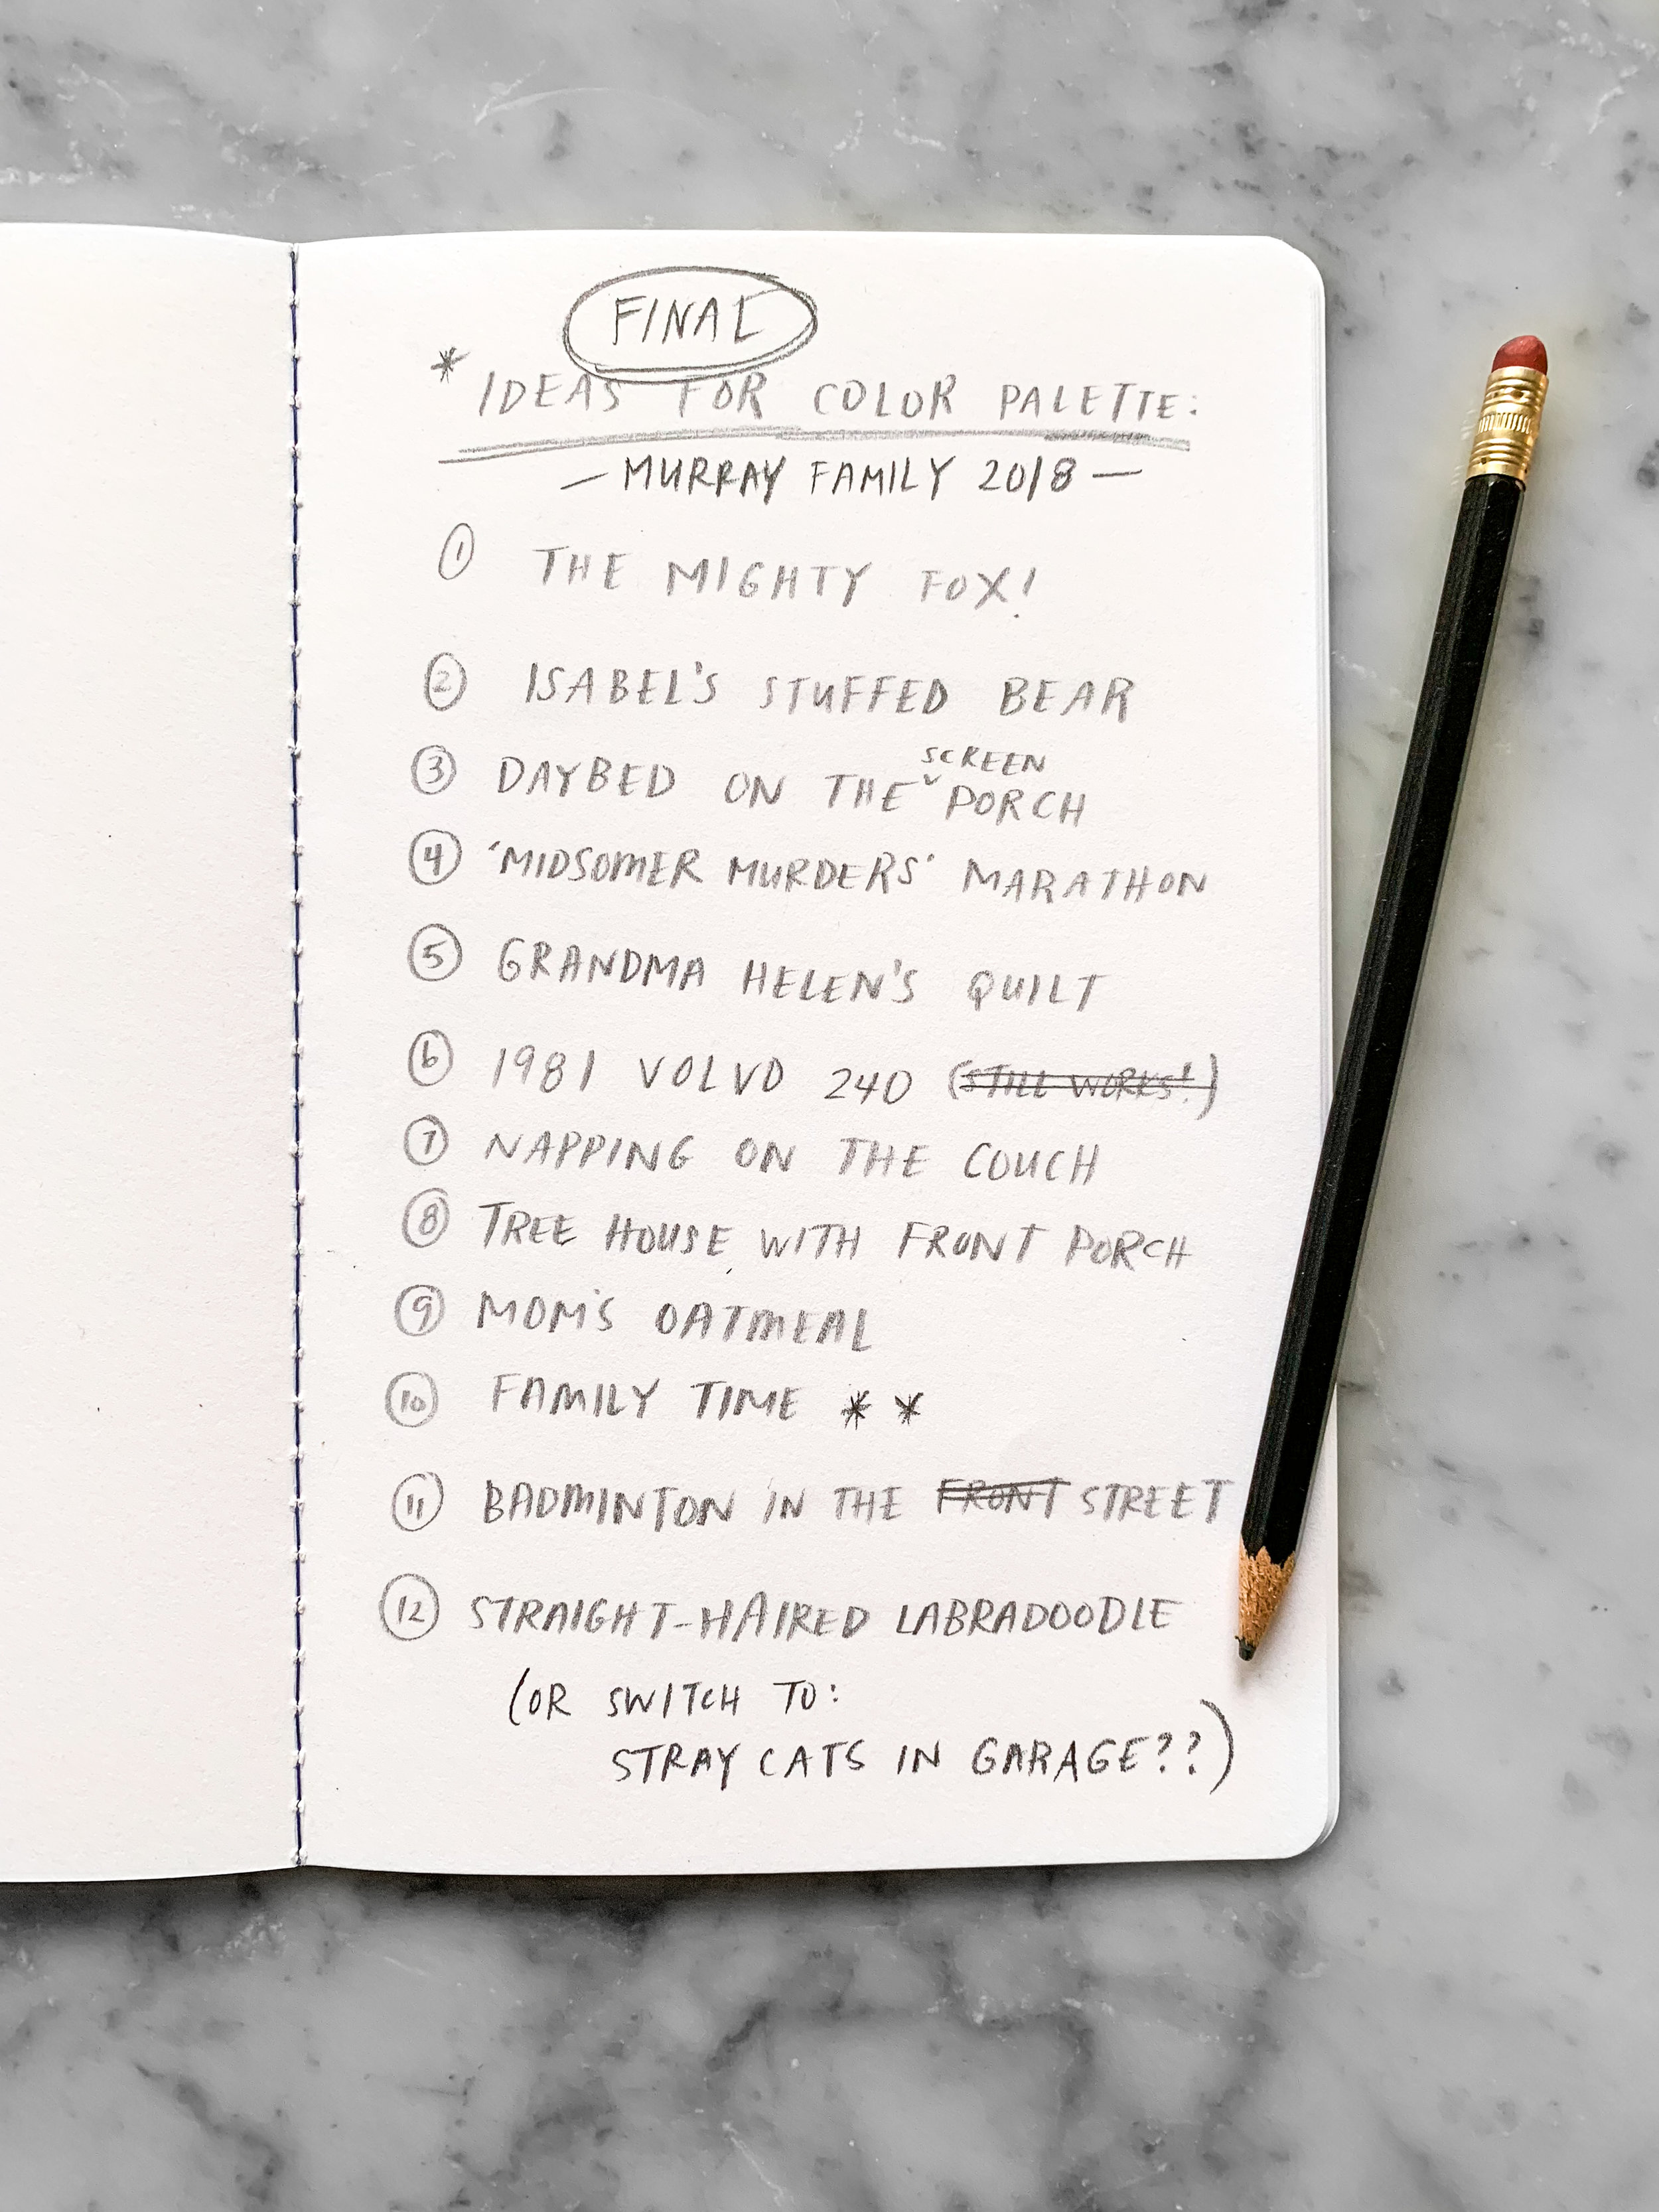 FINAL
* IDEAS FOR COLOR PALETTE:
— MURRAY FAMILY 2018 —
1 THE MIGHTY FOX!
2 ISABEL'S STUFFED BEAR
3 DAYBED ON THE SCREEN PORCH
4 'MIDSOMER MURDERS' MARATHON
5 GRANDMA HELEN'S QUILT
6 1981 VOLVO 240 (STILL WORKS!)
7 NAPPING ON THE COUCH
8 TREE HOUSE WITH FRONT PORCH
9 MOM'S OATMEAL
10 FAMILY TIME * *
11 BADMINTON IN THE FRONT STREET
12 STRAIGHT-HAIRED LABRADOODLE
(OR SWITCH TO:
STRAY CATS IN GARAGE??)